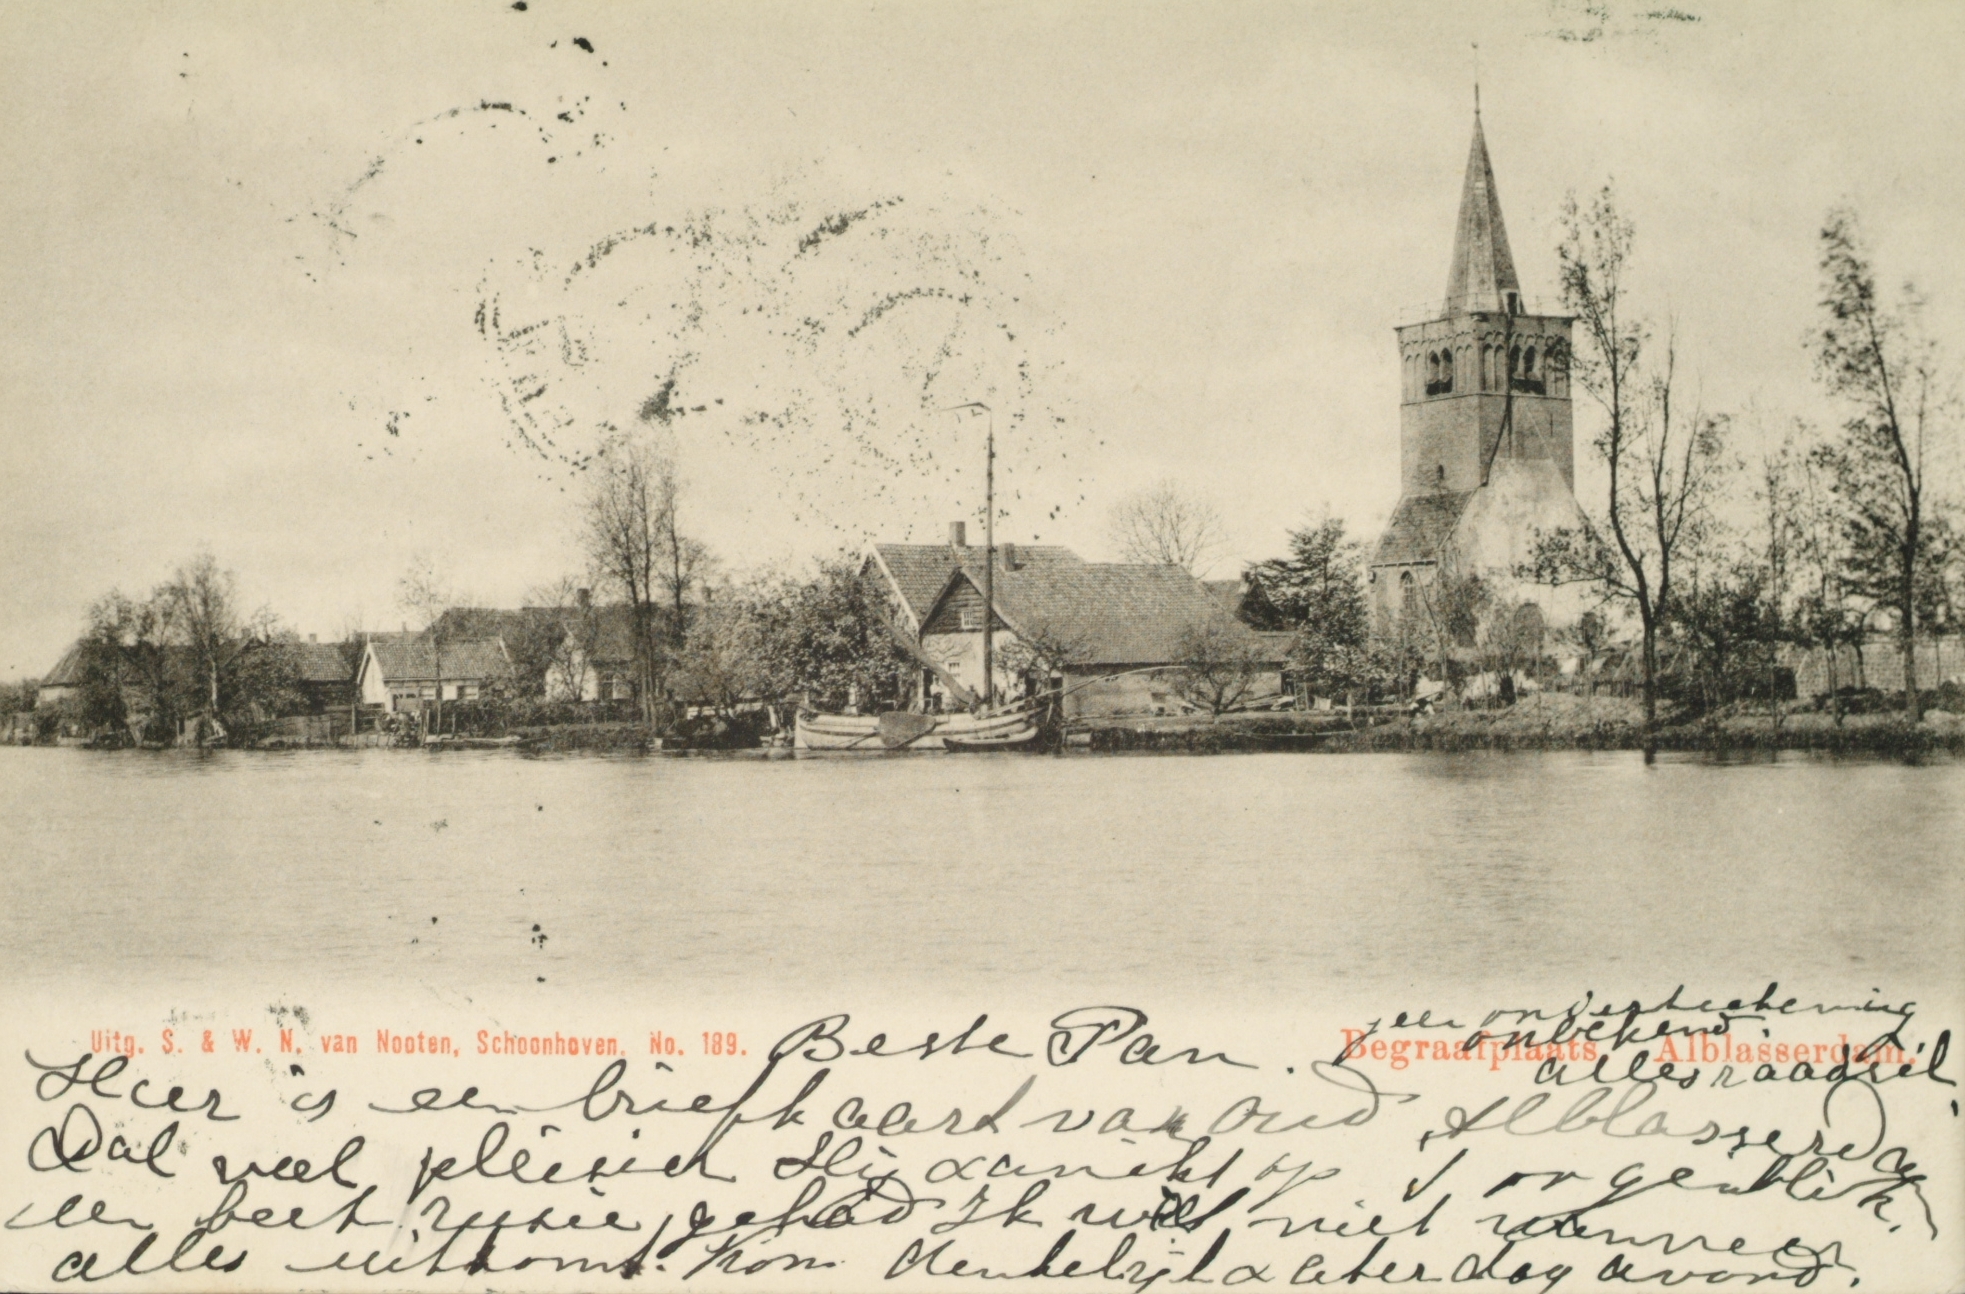 Uitg. S. & W. N. van Nooten, Schoonhoven. No. 189.
Begraafplaats Alblasserdam.
Beste Pan.
onbekend.
alles raadsel
Hier is een briefkaart van Oud Alblasserdam
Dat veel pleisier Hij op 't oogenblik.
een beet rusie gehad Ik niet wanneer
alles uitkomt. Kom denkelijk zaterdag avond.